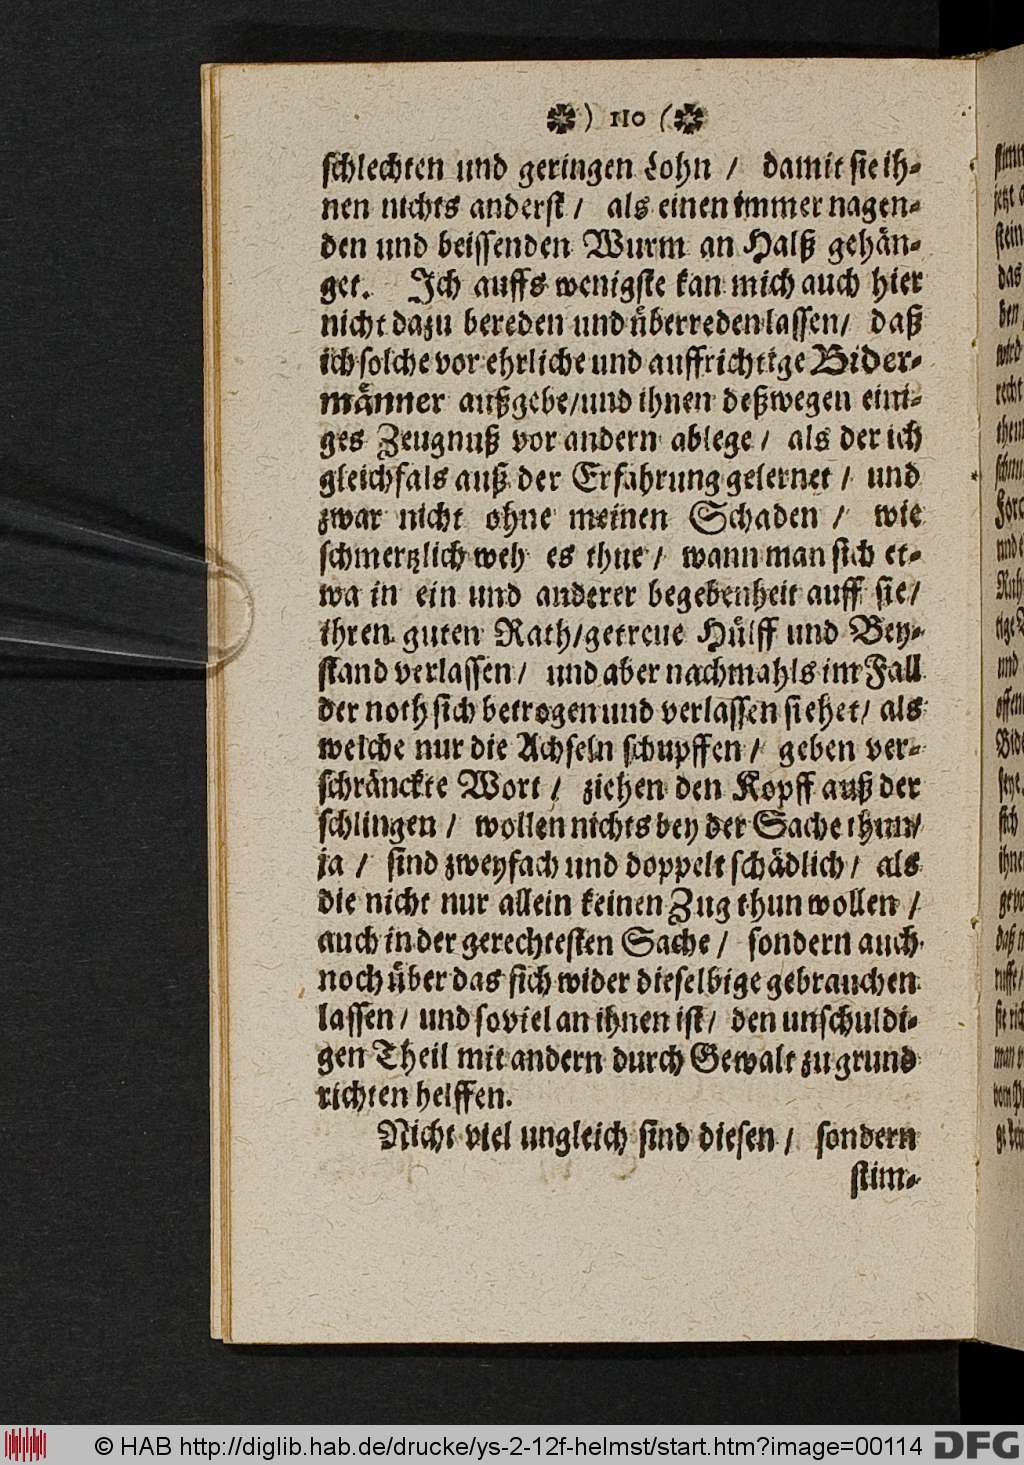 ❁ ) 110 ( ❁
schlechten und geringen Lohn / damit sie ih-
nen nichts anderst / als einen immer nagen-
den und beissenden Wurm an Halß gehän-
get. Ich auffs wenigste kan mich auch hier
nicht dazu bereden und überreden lassen / daß
ich solche vor ehrliche und auffrichtige Bider-
männer außgebe / und ihnen deßwegen eini-
ges Zeugnuß vor andern ablege / als der ich
gleichfals auß der Erfahrung gelernet / und
zwar nicht ohne meinen Schaden / wie
schmertzlich weh es thue / wann man sich et-
wa in ein und anderer begebenheit auff sie /
ihren guten Rath / getreue Hülff und Bey-
stand verlassen / und aber nachmahls im Fall
der noth sich betrogen und verlassen siehet / als
welche nur die Achseln schupffen / geben ver-
schränckte Wort / ziehen den Kopff auß der
schlingen / wollen nichts bey der Sache thun /
ja / sind zweyfach und doppelt schädlich / als
die nicht nur allein keinen Zug thun wollen /
auch in der gerechtesten Sache / sondern auch
noch über das sich wider dieselbige gebrauchen
lassen / und soviel an ihnen ist / den unschuldi-
gen Theil mit andern durch Gewalt zu grund
richten helffen.
Nicht viel ungleich sind diesen / sondern
stim-
© HAB http://diglib.hab.de/drucke/ys-2-12f-helmst/start.htm?image=00114
DFG